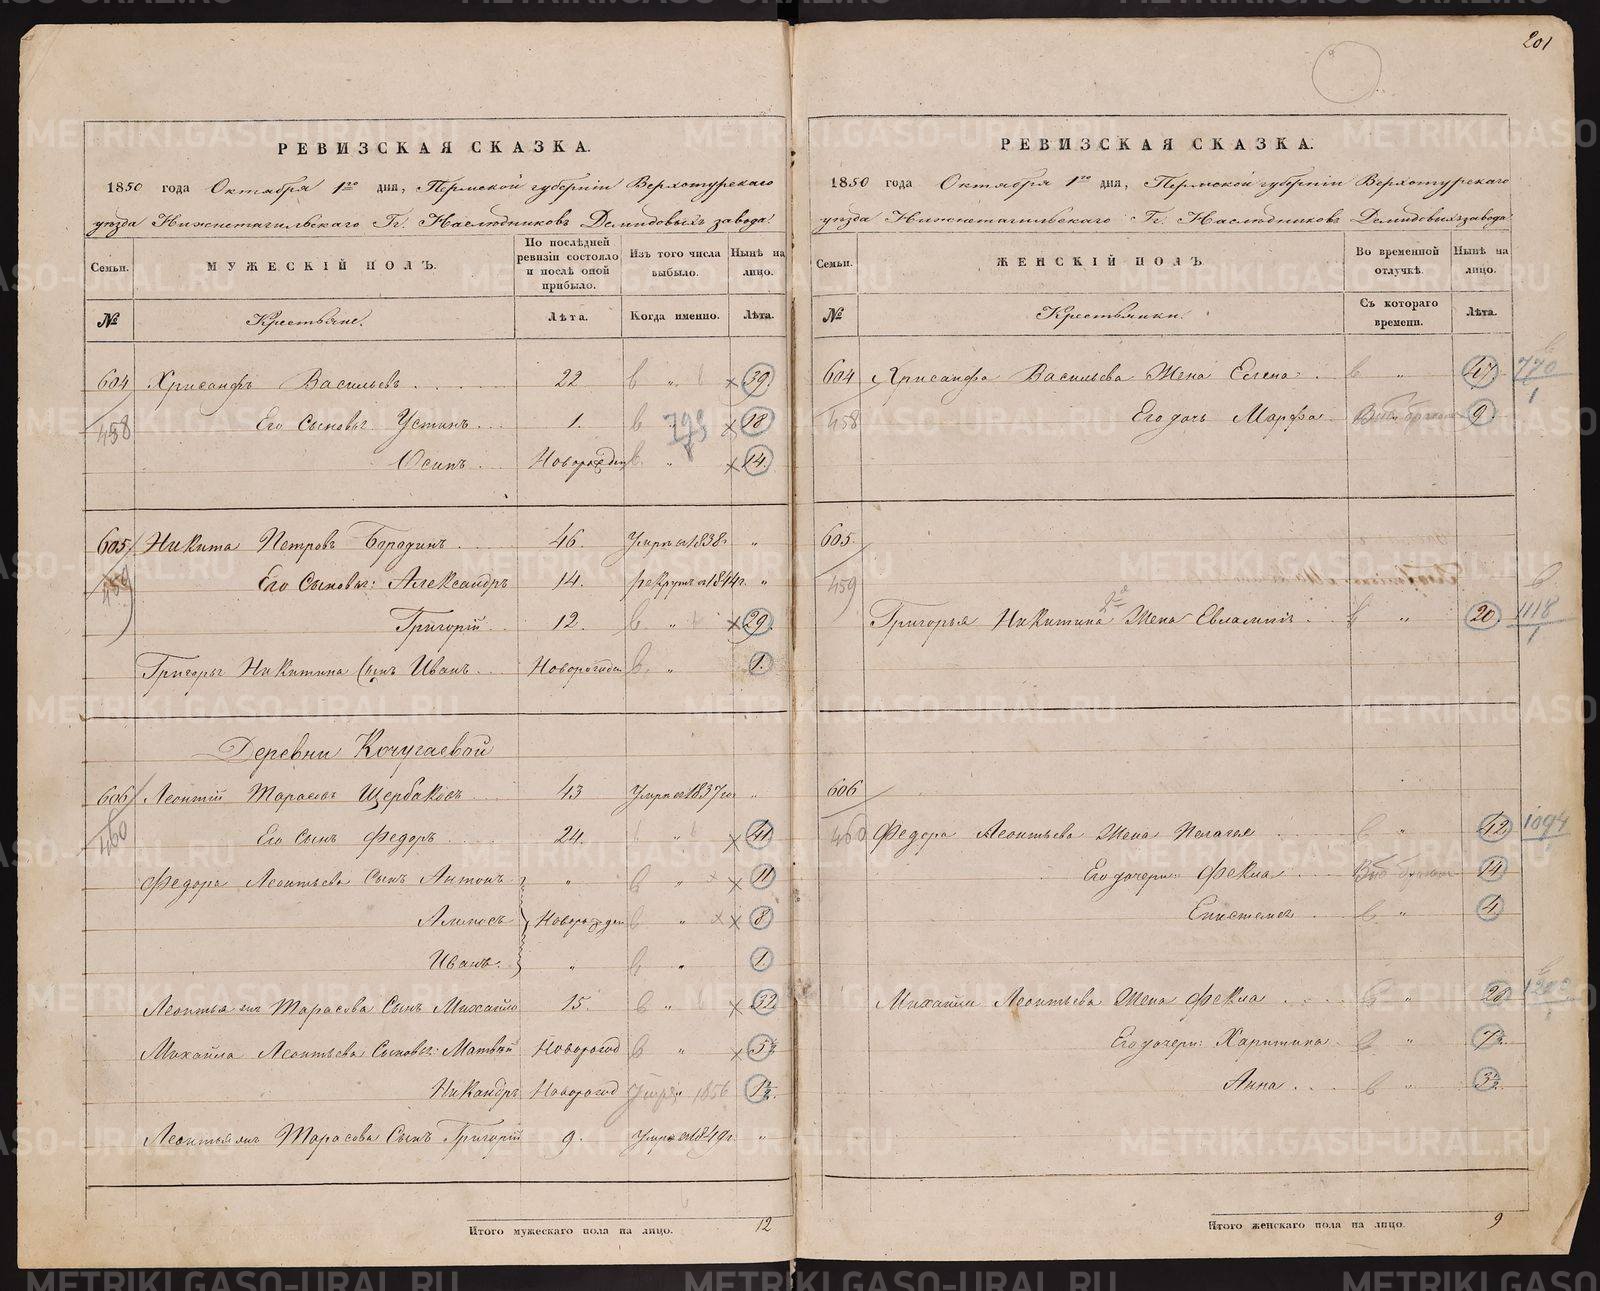 201
РЕВИЗСКАЯ СКАЗКА.
1850 года Октября 1го дня, Пермской губернiи Верхотурскаго
уѣзда Нижнетагильскаго Гг. Наслѣдниковъ Демидовыхъ завода
Семьи. МУЖЕСКIЙ ПОЛЪ. По послѣдней ревизiи состояло и послѣ оной прибыло. Изъ того числа выбыло. Нынѣ на лицо.
№ Крестьяне. Лѣта. Когда именно. Лѣта.
604 Хрисанфъ Васильевъ 22 " 39
458 Его Сыновья Устинъ 1. 18
Осипъ Новорожден " 14
605 Никита Петровъ Бородинъ 46. Умре въ 1838г "
459 Его Сыновья: Александръ 14. рекрутъ въ 1844г. "
Григорiй 12. " 29.
Григорья Никитина Сынъ Иванъ Новорожден " 1.
Деревни Кочугаевой
606 Леонтiй Тарасовъ Щербаковъ 43 Умре въ 1837го "
460 Его Сынъ Федоръ 24. " 41
Федора Леонтьева Сынъ Антонъ " " 11
Новорожден " 8
Иванъ. " " 1.
Леонтья Тарасова Сынъ Михайло 15. " 32
Михайла Леонтьева Сыновья: Матвѣй Новорожд " 5½
Никандръ Новорожд Умре 1856 1½
Леонтья Тарасова Сынъ Григорiй 9. Умре въ 1849г. "
Итого мужескаго пола на лицо. 12
РЕВИЗСКАЯ СКАЗКА.
1850 года Октября 1го дня, Пермской губернiи Верхотурскаго
уѣзда Нижнетагильскаго Гг. Наслѣдниковъ Демидовыхъ завода
Семьи. ЖЕНСКIЙ ПОЛЪ Во временной отлучкѣ. Нынѣ на лицо.
№ Крестьянки. Съ котораго времени. Лѣта.
604 Хрисанфа Васильева Жена Елена " 47 770
458 Его дочь Марфа 9.
605.
459 Григорья Никитина 2я Жена Евлампiя " 20 1118
606
460 Федора Леонтьева Жена Пелагея " 42 1094
Его дочери: Фекла 14
Епистемея " 4
Михайла Леонтьева Жена Фекла " 28
Его дочери: Харитина " 7½
Анна " 3½
Итого женскаго пола на лицо. 9
METRIKI.GASO-URAL.RU